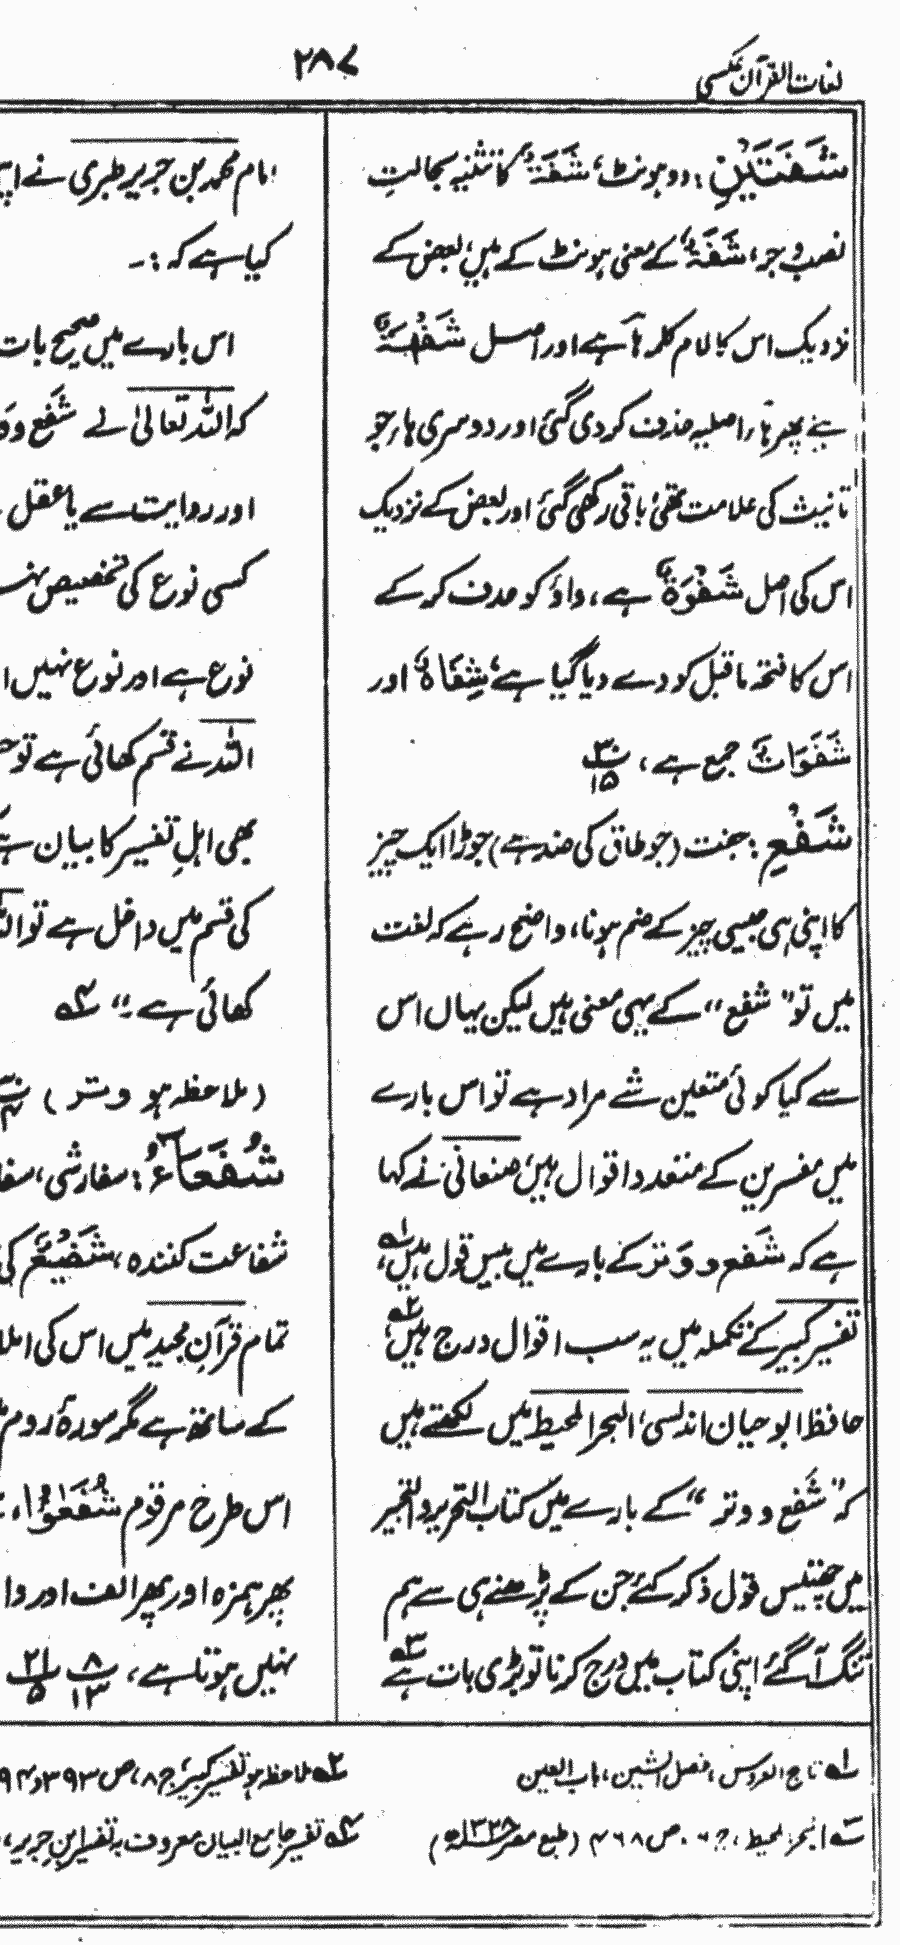 لغات القرآن عکسی
۲۸۷
شَفَتَيْنِ: دو ہونٹ، شَفَةٌ کا تثنیہ بحالتِ
نصب و جر، شَفَةٌ کے معنی ہونٹ کے ہیں، بعض کے
نزدیک اس کا لام کلمہ ہآ ہے اور اصل شَفْهَةٌ
ہے پھر ہار اصلیہ حذف کردی گئی اور دوسری ہار جو
تانیث کی علامت تھی باقی رکھی گئی اور بعض کے نزدیک
اس کی اصل شَفْوَةٌ ہے، واؤ کو حذف کر کے
اس کا فتحہ ماقبل کو دے دیا گیا ہے، شِفَاهٌ اور
شَفَوَاتٌ جمع ہے، ۳۰/۱۵
شَفْعٍ: جفت (جو طاق کی ضد ہے) جوڑا ایک چیز
کا اپنی ہی جیسی چیز کے ضم ہونا، واضح رہے کہ لغت
میں تو "شفع" کے یہی معنی ہیں لیکن یہاں اس
سے کیا کوئی متعین شے مراد ہے تو اس بارے
میں مفسرین کے متعدد اقوال ہیں، صنعانی نے کہا
ہے کہ شَفع و وَتر کے بارے میں بیس قول ہیں، لہ
تفسیر کبیر کے تکملہ میں یہ سب اقوال درج ہیں، ۲ہ
حافظ ابو حیان اندلسی، البحر المحیط میں لکھتے ہیں
کہ "شَفع و وتر" کے بارے میں کتاب التحریر والتحبیر
میں چھتیس قول ذکر کئے جن کے پڑھنے ہی سے ہم
تنگ آگئے اپنی کتاب میں درج کرنا تو بڑی بات ہے ۳ہ
امام محمد بن جریر طبری نے
کیا ہے کہ :۔
اس بارے میں صحیح بات
کہ اللہ تعالیٰ نے شَفع
اور روایت سے یا عقل
کسی نوع کی تخصیص
نوع ہے اور نوع نہیں
اللہ نے قسم کھائی ہے تو
بھی اہلِ تفسیر کا بیان
کی قسم میں داخل ہے تو
کھائی ہے۔" ۴ہ
(ملاحظہ ہو وتر)
شُفَعَاءُ: سفارشی،
شفاعت کنندہ، شَفِیْعٌ کی
تمام قرآنِ مجید میں اس کی
کے ساتھ ہے مگر سورۂ روم
اس طرح مرقوم شُفَعٰؤُا،
پھر ہمزہ اور پھر الف اور
نہیں ہوتا ہے، ۸/۱۳ ۲۱/۵
۱ہ تاج العروس، فصل الشین، باب العین
۲ہ ملاحظہ ہو تفسیر کبیر، ج ۸، ص ۳۹۳ و
۳ہ البحر المحیط، ج ۸، ص ۴۶۸ (طبع مصر ۱۳۲۸ھ)
۴ہ تفسیر جامع البیان معروف بہ تفسیر ابنِ جریر،